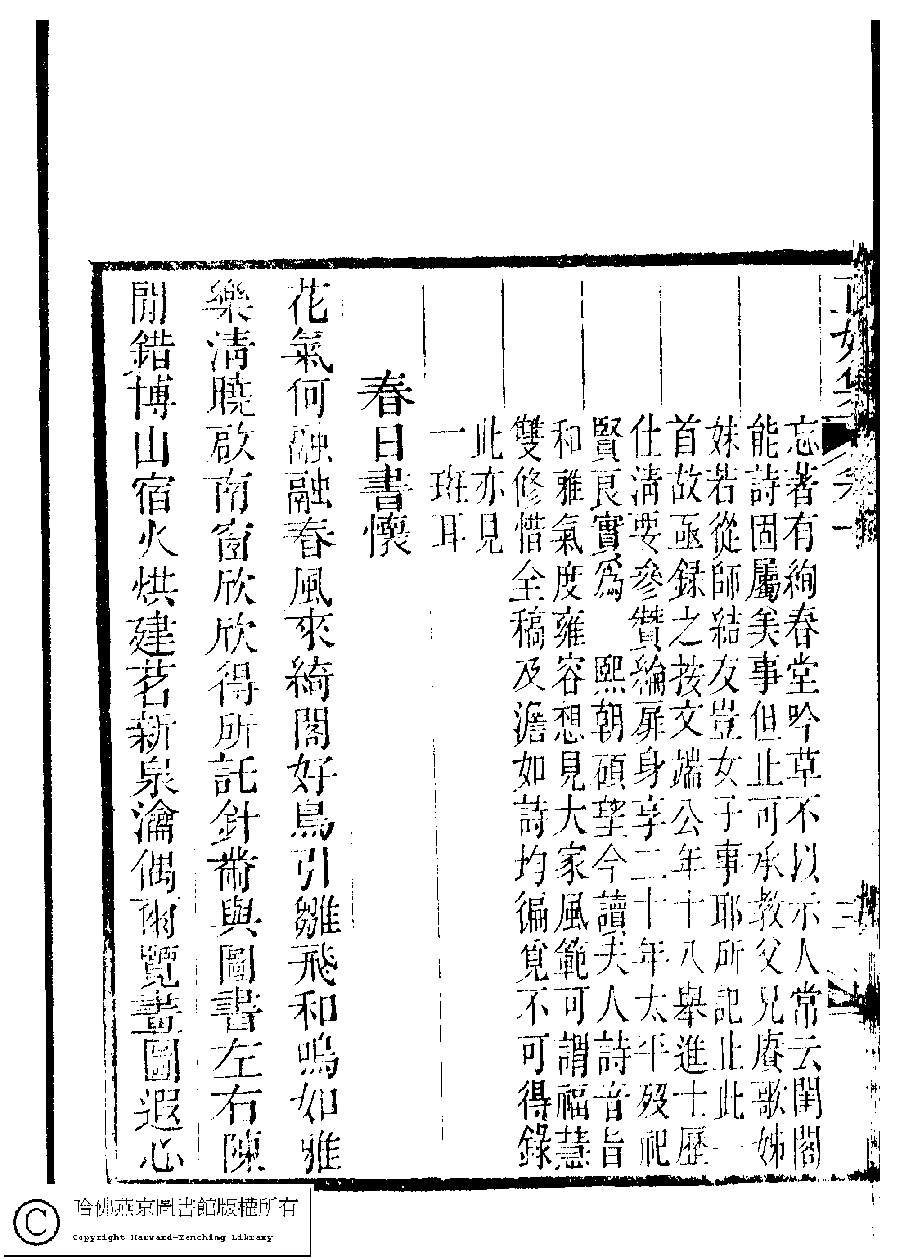 忘著有絢春堂吟草不以示人常云閨閣
能詩固屬美事但止可承教父兄賡歌姊
妹若從師結友豈女子事耶所記止此一
首故亟錄之按文端公年十八舉進士歷
仕清要參贊綸扉身享二十年太平歿祀
賢良實為　熙朝碩望今讀夫人詩音旨
和雅氣度雍容想見大家風範可謂福慧
雙修惜全稿及澹如詩均徧覓不可得錄
此亦見
一斑耳
春日書懷
花氣何融融春風來綺閣好鳥引雛飛和鳴如雅
樂清曉啟南窗欣欣得所託針黹與圖書左右陳
閒錯博山宿火烘建茗新泉瀹偶爾覽畫圖遐心
哈佛燕京圖書館版權所有
Copyright Harvard-Yenching Library